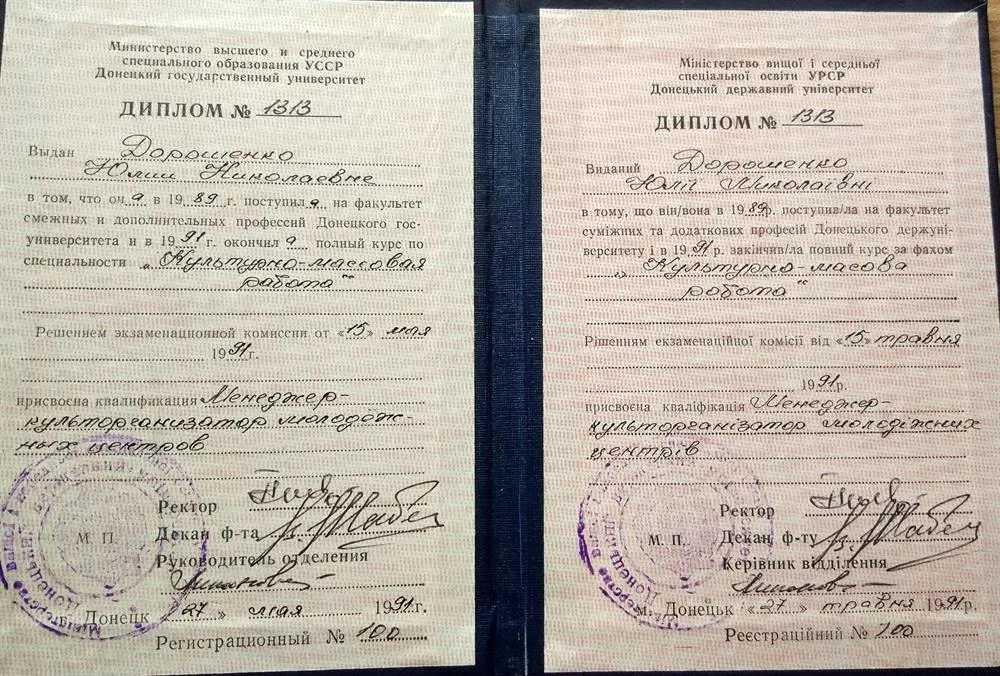 Министерство высшего и среднего
специального образования УССР
Донецкий государственный университет
ДИПЛОМ № 1313
Выдан Дорошенко
Юлии Николаевне
в том, что он а в 1989 г. поступил а на факультет
смежных и дополнительных профессий Донецкого гос-
университета и в 1991 г. окончил а полный курс по
специальности „Культурно-массовая
работа“
Решением экзаменационной комиссии от «15» мая
1991г.
присвоена квалификация Менеджер-
культорганизатор молодеж-
ных центров
Ректор
М. П. Декан ф-та
Руководитель отделения
г. Донецк „27 » мая 1991г.
Регистрационный № 100
Міністерство вищої і середньої
спеціальної освіти УРСР
Донецький державний університет
ДИПЛОМ № 1313
Виданий Дорошенко
Юлії Миколаївні
в тому, що він/вона в 1989р. поступив/ла на факультет
суміжних та додаткових професій Донецького держуні-
верситету і в 1991р. закінчив/ла повний курс за фахом
„Культурно-масова
робота“
Рішенням екзаменаційної комісії від «15» травня
1991р.
присвоєна кваліфікація Менеджер-
культорганізатор молодіжних
центрів
Ректор
М. П. Декан ф-ту
Керівник відділення
м. Донецьк «27» травня 1991р.
Реєстраційний № 100